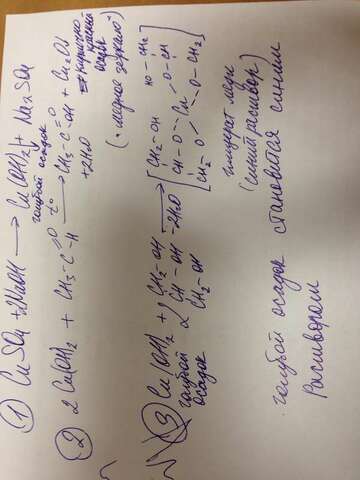 ① CuSO₄ + 2NaOH ⟶ Cu(OH)₂↓ + Na₂SO₄
голубой осадок
② 2 Cu(OH)₂ + CH₃-C-H ⟶ CH₃-C-OH + Cu₂O↓
O t° O
+2H₂O кирпично-
красный
осадок
("медное зеркало")
③ Cu(OH)₂ + 2 CH₂-OH ⟶ [CH₂-OH HO-CH₂
голубой CH-OH -2H₂O CH-O Cu O-CH
осадок CH₂-OH CH₂-O O-CH₂]
глицерат меди
(синий раствор)
голубой осадок становится синим
раствором